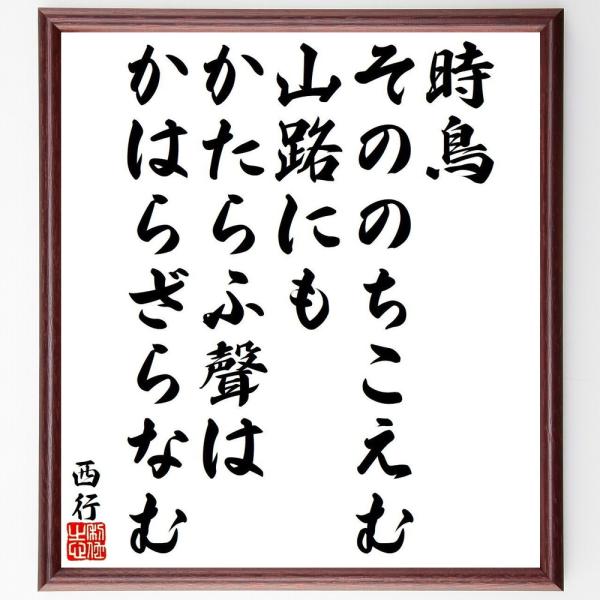 時鳥
そののちこえむ
山路にも
かたらふ聲は
かはらざらなむ
西行